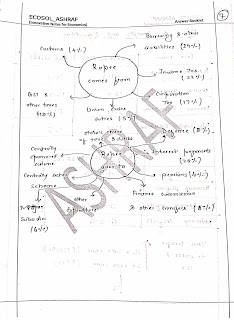 ECOSOL_ASHRAF
(Innovative Notes for Economics)
Answer Booklet
7
Borrowing & other
Customs (4%)
liabilities (24%)
Rupee
comes from
Income Tax
(22%)
Corporation
Tax
(17%)
GST &
other taxes
(18%)
Union Excise
duties (5%)
states share
of taxes & duties
Defence (8%)
Rupee
goes to
Centrally
sponsored
scheme
Interest payments
(20%)
pensions (4%)
Centrally sector
scheme
other
Expenditure
Finance commission
& other transfers (8%)
Subsidies
(6%)
ASHRAF